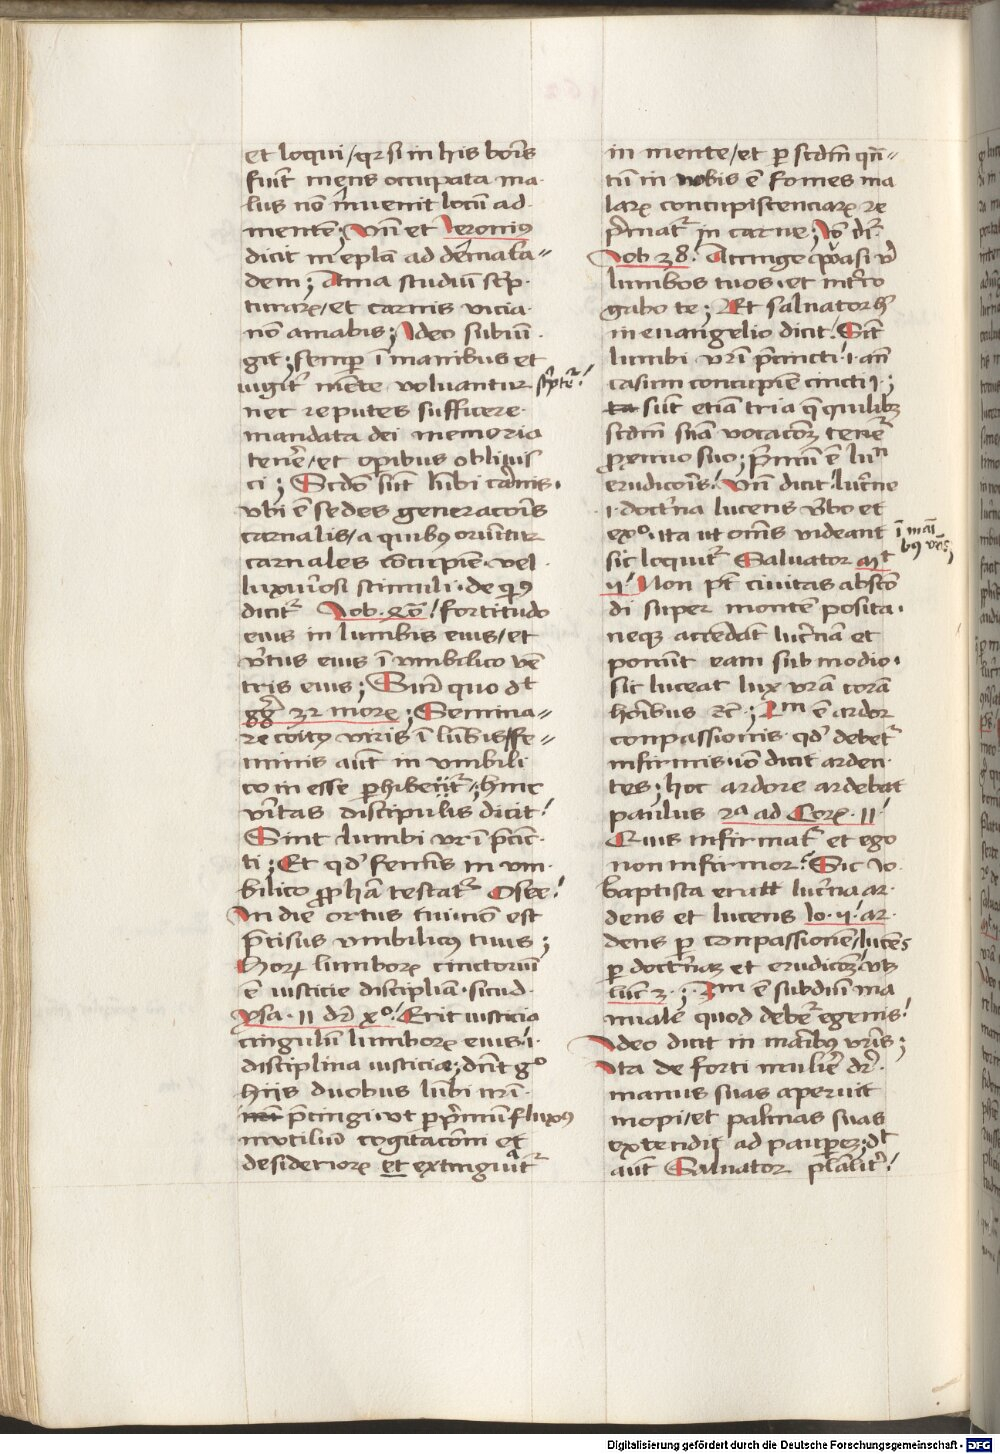 et loqui / qr si in his bonis
fuit mens occupata ma-
lus no invenit locu ad
mente; Vn et Ieronimus
dicit in epla ad demetia=
dem; Ama studiu scrip-
turarꝫ / et carnis vicia
no amabis; Ideo subiun
git; semp ī manibus et
iugit' mente voluantur
nec reputes sufficere
mandata dei memoria
tenere / et opibus oblivis
ci; Scdo sūt lūbi carnis.
vbi ē sedes generacois
carnalis / a quibꝰ oriūtur
carnales cōcupien vel
luxuriosi stimuli. de
dicit' Iob fortitudo
eius in lumbis eius / et
v'tus eius ī vmbilico ven
tris eius; quo dt
gg' 32 morꝫ; Semina=
re coitꝰ viris ī lūbis / fe=
minis aut in vmbili
co in esse phibent'; hinc
v'itas discipulis dicit
Sint lumbi vri p̄cinc
ti; Et qd' femis in vm-
bilico ppha testat' Osee
In die ortus tui nō est
p̄cisus vmbilicꝰ tuus;
horꝫ lumborꝫ cinctoriū
ē iusticie disciplia. sicud
ysa. 11 dr xº Erit iusticia
cingulū lumborꝫ eius .i.
disciplina iusticie; dnt gº
hiis duobus lūbi nri
p̄cingi vt p p'mū fluxꝰ
inutiliū cogitacom et
desideriorꝫ et extinguāt'
in mente / et p scdm qn=
tū in nobis ē fomes ma
larꝫ concupiscenciarꝫ re
p'mat' in carne; Iō dr
Iob 38. Accinge quasi v'
lumbos tuos. et int'ro
gabo te; Et saluator hic
in euangelio dicit Sint
lumbi vri p̄cincti .i. an
casim concupien cincti
sūt etiā tria q quilibꝫ
scdm suā vocacoꝫ tene
proximo suo; p'mū ē lun
erudicois Vn dicit luc'ne
.i. doct'na lucens v'bo et
exº. ita ut oms videant
sic loquit' Saluator Mt
Non pt ciuitas abscon
di super monte posita.
neqꝫ accēdāt luc'nam et
ponūt eam sub modio.
sic luceat lux vra corā
hoibus ꝛc; ē ardor
conpassionis. qd' debet'
infirmis. iō dicit arden
tes; hoc ardore ardebat
paulus 2ª ad Corꝫ. 11.
Quis infirmat' et ego
non infirmor. Sic Io
baptista eratt luc'na ar-
dens et lucens Io. ar-
dens p conpassionem / lucens
p doct'naꝫ et erudicoꝫ vtꝫ
luc 3.; 3m ē subdiu ma
nuale quod debet egenis
Ideo dicit in maibꝰ vris;
Ita de forti mulie dr.
manus suas aperuit
inopi / et palmas suas
extendit ad paupeꝫ; dt
aut Saluator plalit'
ī mai
bꝰ vris;
Digitalisierung gefördert durch die Deutsche Forschungsgemeinschaft - DFG